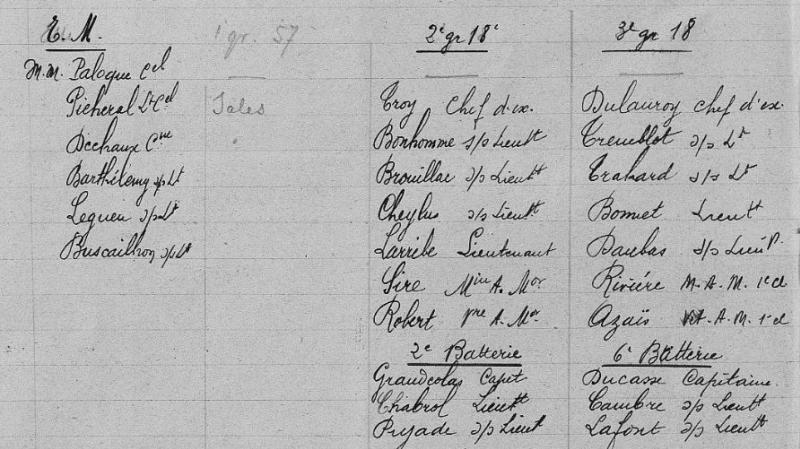 E. M.
M.M. Paloque Cel
Picheral Lt Cel
Dechaux Cne
Barthélemy s/s Lt
Lequeu s/s Lt
Buscailhon s/s Lt
1 gr. 57
Jales
2e gr 18e
Troy Chef d'ex.
Bonhomme s/s Lieutt
Brouillac s/s Lieutt
Cheylus s/s Lieutt
Larribe Lieutenant
Sire Min A. Mor
Robert Vre A. Mor
2e Batterie
Grandcolas Capit
Chabrol Lieutt
Puyade s/s Lieut
3e gr 18
Dulauroy Chef d'ex.
Tremblot s/s Lt
Trahard s/s Lt
Bonnet Lieutt
Daubas s/s Lieut
Rivière M. A. M. 1e cl
Azaïs A. M. 1e cl
6e Batterie
Ducasse Capitaine.
Cambre s/s Lieutt
Lafont s/s Lieutt